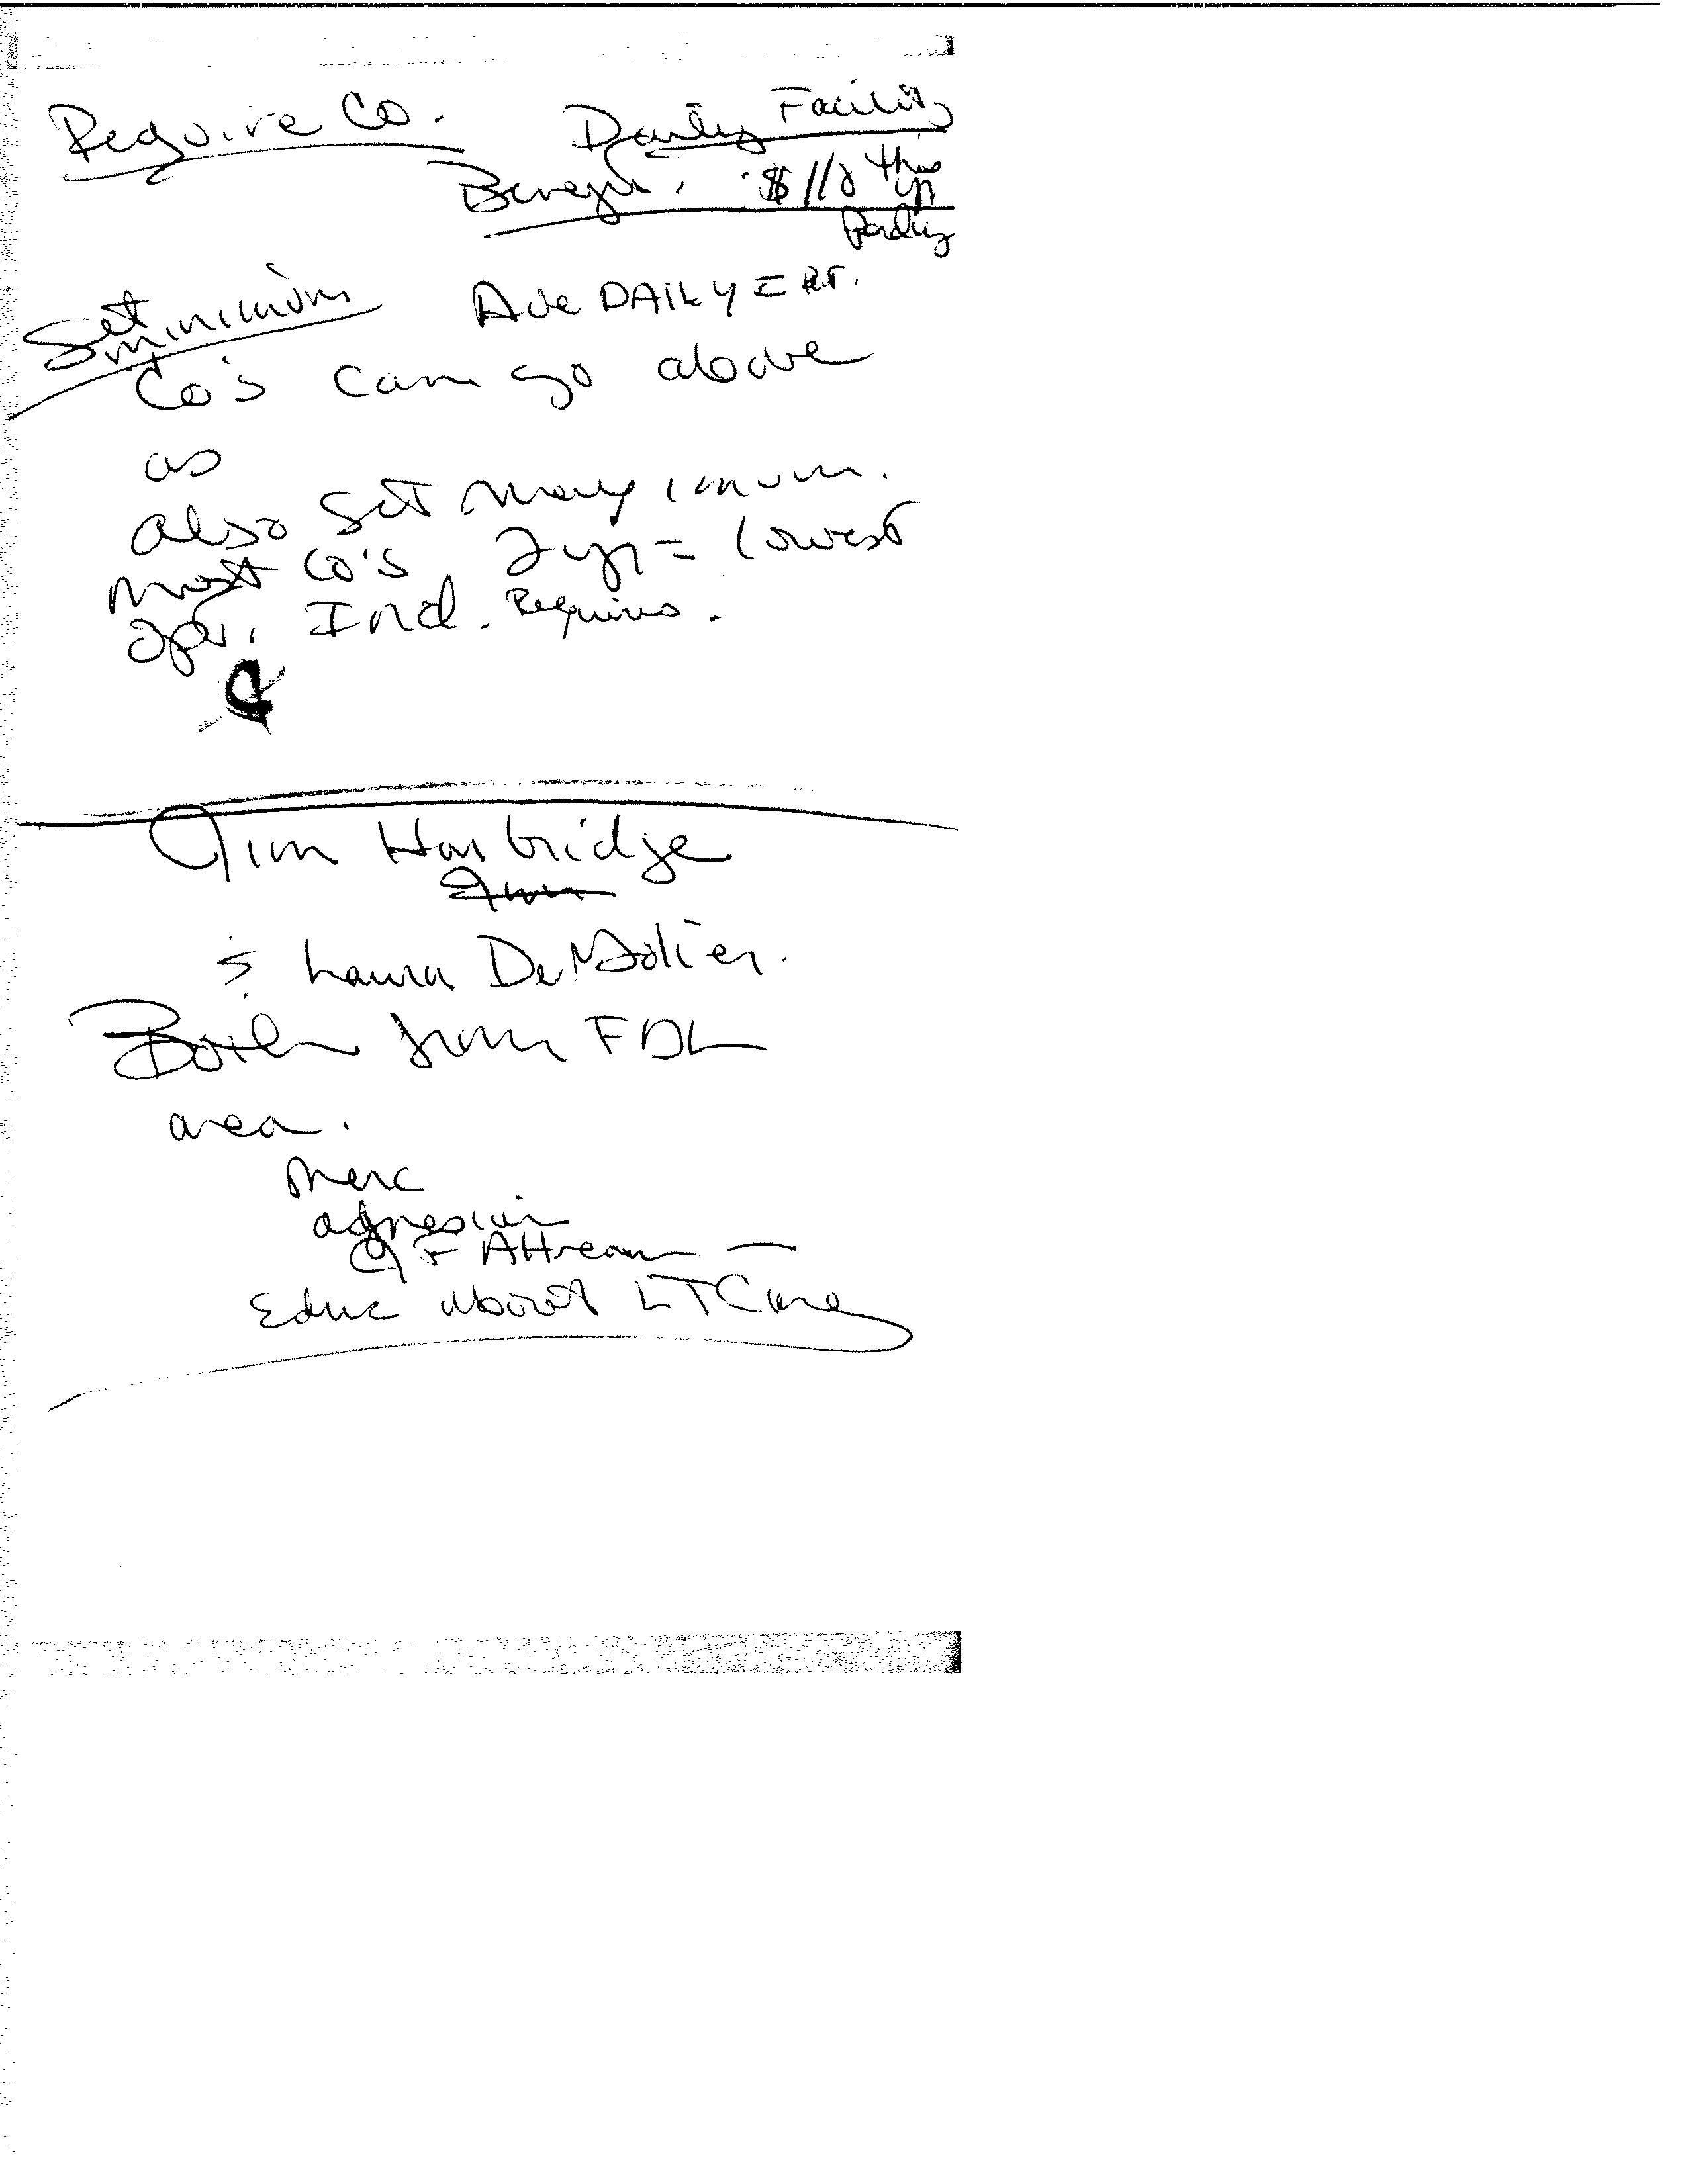 Require Co. Daily Facility
Benefit. $110 this yr
Daily
Set minimum Ave DAILY =
Co's can go above
as
also set maximum.
most Co's 2 yr = lowest
Ind. Requires.
Jim Harbridge
Laura DeNolier.
Both from FDL
area.
Merc
agnesian
Educ about LTCare